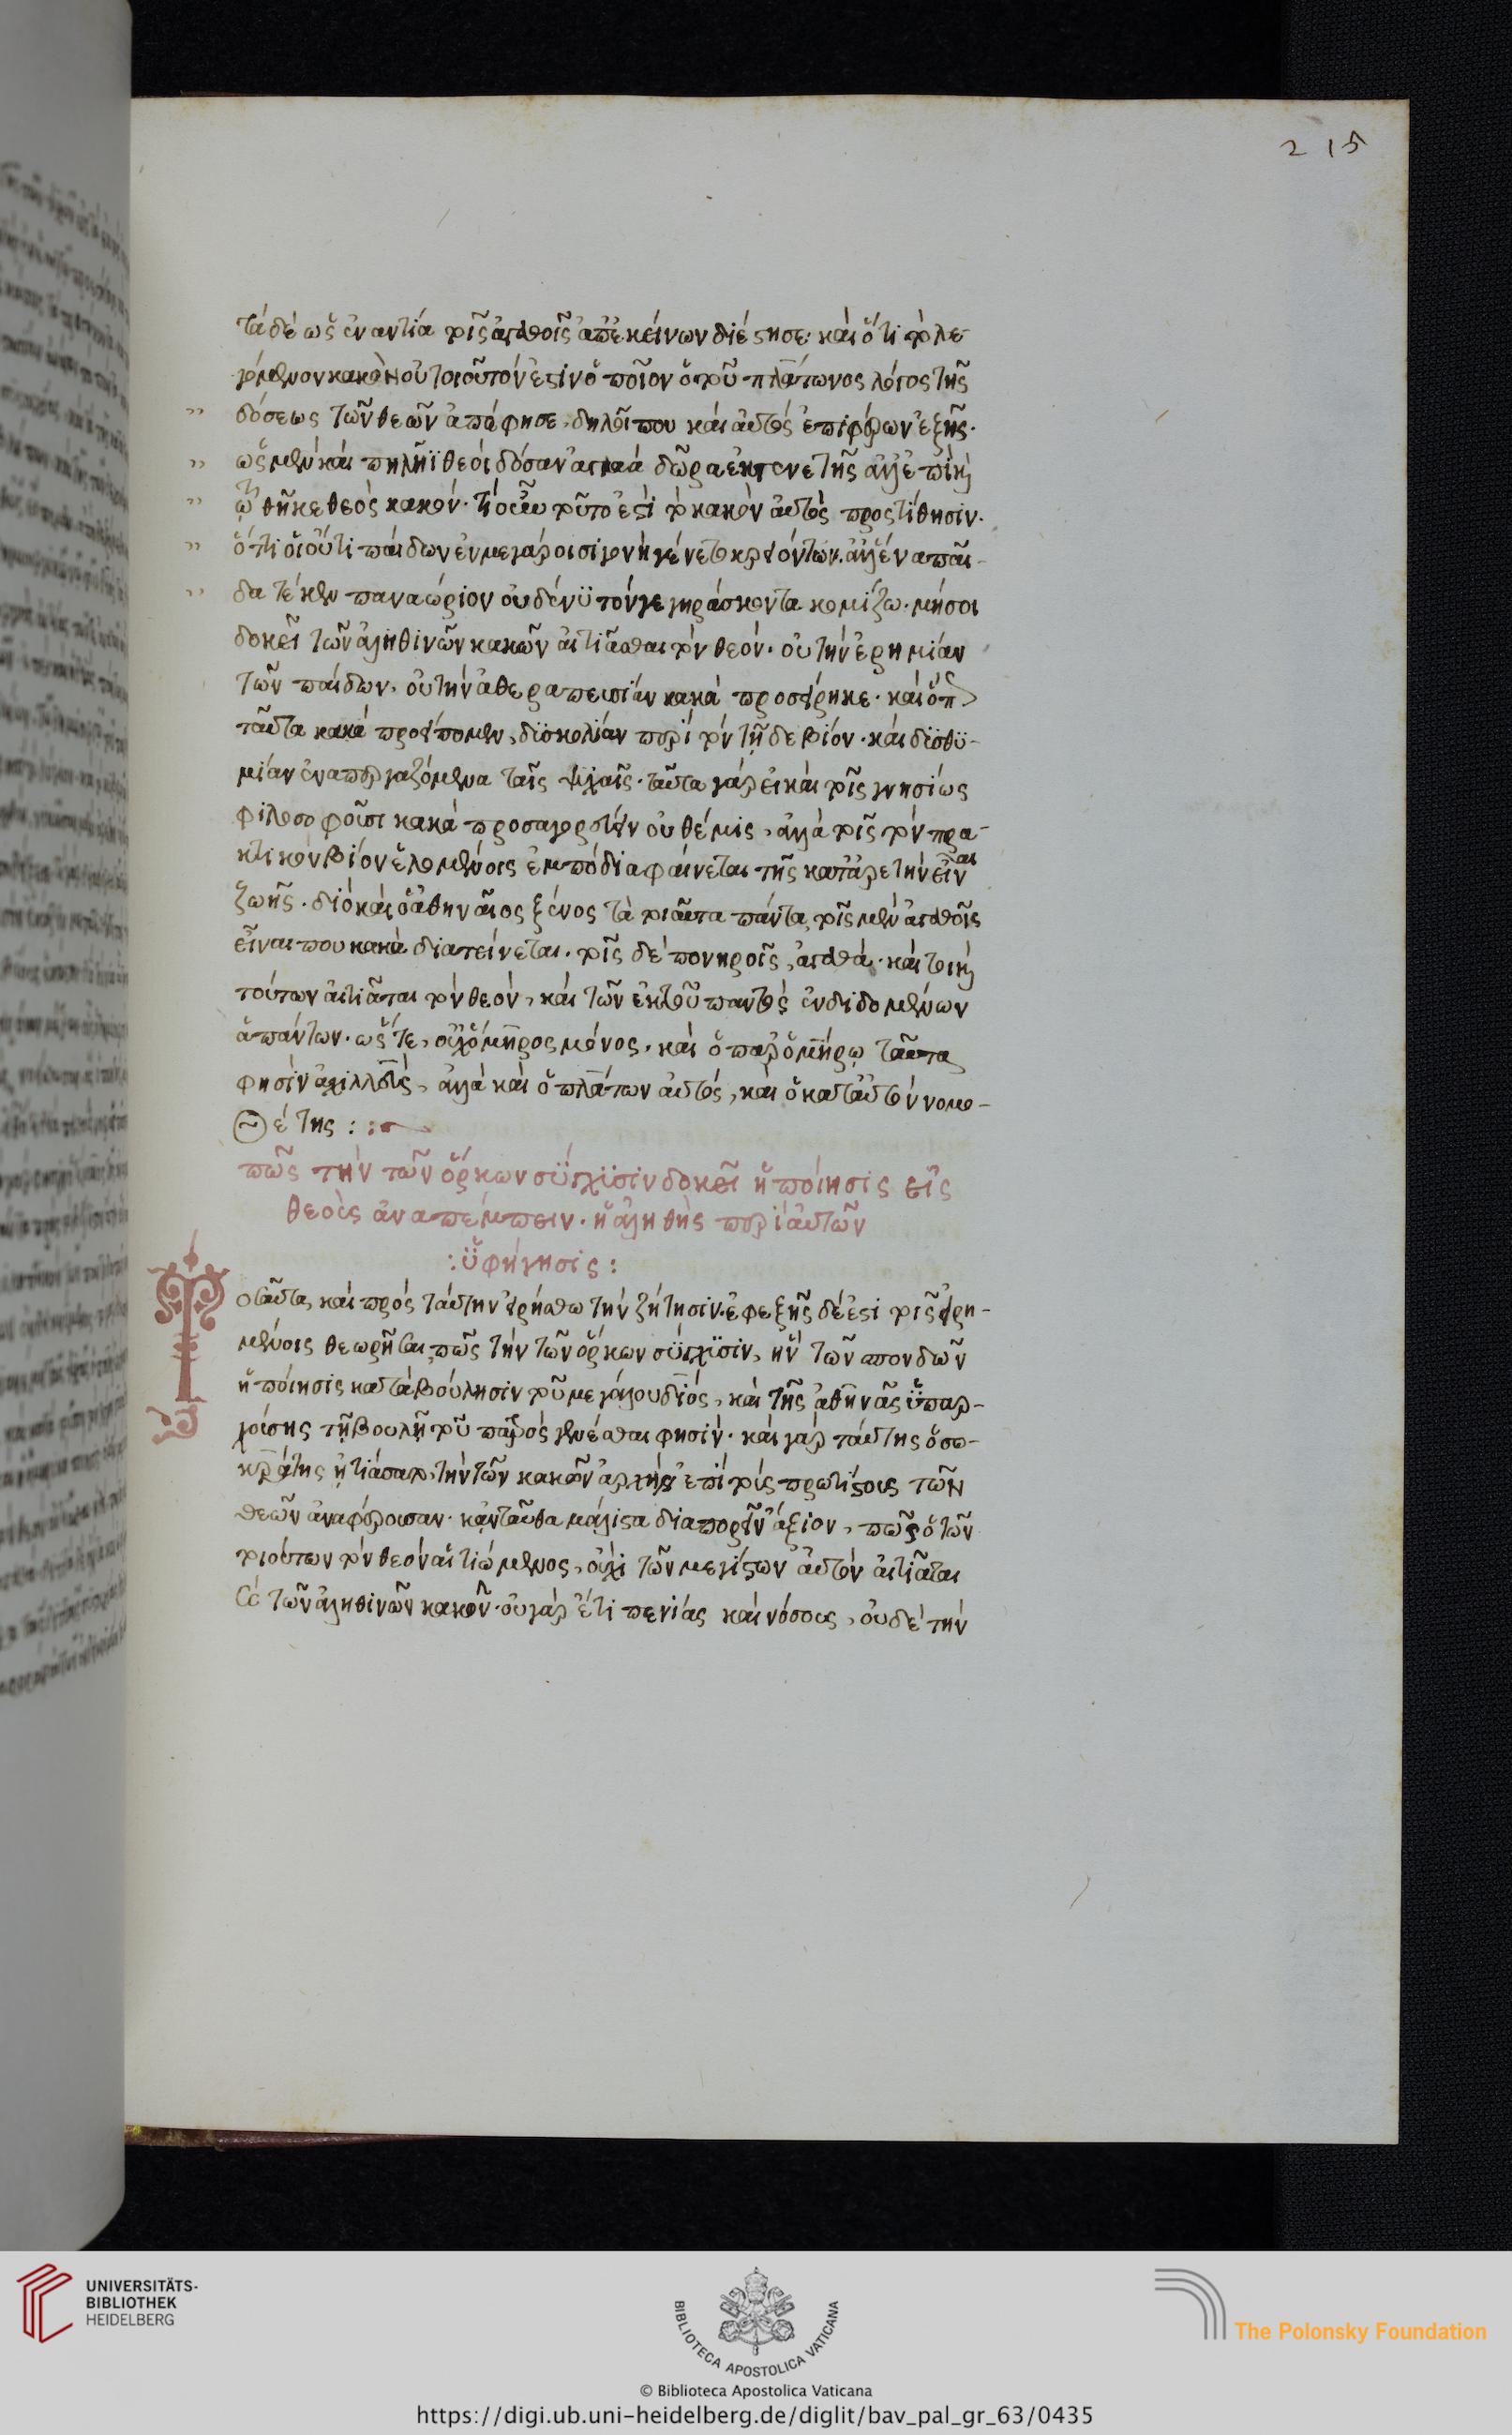 215
τὰ δὲ ὡς ἐναντία τοῖς ἀγαθοῖς ἀπ' ἐκείνων διέστησε· καὶ ὅτι τὸ λε-
γόμενον κακὸν οὐ τοιοῦτόν ἐστιν ὁποῖον ὁ τοῦ πλάτωνος λόγος τῆς
δόσεως τῶν θεῶν ἀπέφησε, δηλοῖ που καὶ αὐτὸς ἐπιφέρων ἑξῆς·
ὡς μὲν καὶ πηλῆϊ θεοὶ δόσαν ἀγλαὰ δῶρα ἐκ γενετῆς ἀλλ' ἐπὶ καὶ
τῷ θῆκε θεὸς κακόν· τί οὖν τοῦτο ἐστὶ τὸ κακὸν αὐτὸς προστίθησιν·
ὅττι οἱ οὔτι παίδων ἐν μεγάροισι γονὴ γένετο κρειόντων. ἀλλ' ἕνα παῖ-
δα τέκεν παναώριον οὐδέ νϋ τόνγε γηράσκοντα κομίζω. μή σοι
δοκεῖ τῶν ἀληθινῶν κακῶν αἰτιᾶσθαι τὸν θεόν· οὐ τὴν ἐρημίαν
τῶν παίδων, οὐ τὴν ἀθεραπευσίαν κακὰ προσείρηκε· καὶ ὅπως
ταῦτα κακὰ προσείπομεν, δϋσκολίαν περὶ τὸν τῇδε βίον· καὶ δϋσθϋ-
μίαν ἐναπεργαζόμενα ταῖς ψϋχαῖς· ταῦτα γὰρ εἰ καὶ τοῖς γνησίως
φιλοσοφοῦσι κακὰ προσαγορεύειν οὐ θέμις, ἀλλὰ τοῖς τὸν πρα-
κτικὸν βίον ἑλομένοις ἐμπόδια φαίνεται τῆς κατ' ἀρετὴν εἶναι
ζωῆς. διὸ καὶ ὁ ἀθηναῖος ξένος τὰ τοιαῦτα πάντα, τοῖς μὲν ἀγαθοῖς
εἶναι που κακὰ διατείνεται. τοῖς δὲ πονηροῖς, ἀγαθά. καίτοι καὶ
τούτων αἰτιᾶται τὸν θεόν, καὶ τῶν ἐκ τοῦ παντὸς ἐνδιδομένων
ἁπάντων. ὥστε, οὐχ ὅμηρος μόνος, καὶ ὁ παρ' ὁμήρῳ ταῦτα
φησὶν ἀχιλλεὺς, ἀλλὰ καὶ ὁ πλάτων αὐτὸς, καὶ ὁ κατ' αὐτὸν νομο-
θέτης :
πῶς τὴν τῶν ὅρκων σύγχϋσιν δοκεῖ ἡ ποίησις εἰς
θεοὺς ἀναπέμπειν. ἡ ἀληθὴς περὶ αὐτῶν
: ὑφήγησις :
Τοσαῦτα, καὶ πρὸς ταύτην εἰρήσθω τὴν ζήτησιν· ἐφεξῆς δέ ἐστι τοῖς εἰρη-
μένοις θεωρῆσαι, πῶς τὴν τῶν ὅρκων σύγχϋσιν, ἢν τῶν σπονδῶν
ἡ ποίησις κατὰ βούλησιν τοῦ μεγάλου διὸς, καὶ τῆς ἀθηνᾶς ὑπηρ-
γούσης τῇ βουλῇ τοῦ πατρὸς γενέσθαι φησίν. καὶ γὰρ ταύτης ὁ σω-
κράτης ᾐτιάσατο, τὴν τῶν κακῶν ἀρχὴν ἐπὶ τοὺς πρωτίστους τῶν
θεῶν ἀναφέρουσαν. κἀνταῦθα μάλιστα διαπορεῖν ἄξιον, πῶς ὁ τῶν
τοιούτων τὸν θεὸν αἰτιώμενος, οὐχὶ τῶν μεγίστων αὐτὸν αἰτιᾶται
καὶ τῶν ἀληθινῶν κακῶν. οὐ γὰρ ἔτι πενίας καὶ νόσους, οὐδὲ τὴν
UNIVERSITÄTS-
BIBLIOTHEK
HEIDELBERG
BIBLIOTECA APOSTOLICA VATICANA
© Biblioteca Apostolica Vaticana
The Polonsky Foundation
https://digi.ub.uni-heidelberg.de/diglit/bav_pal_gr_63/0435